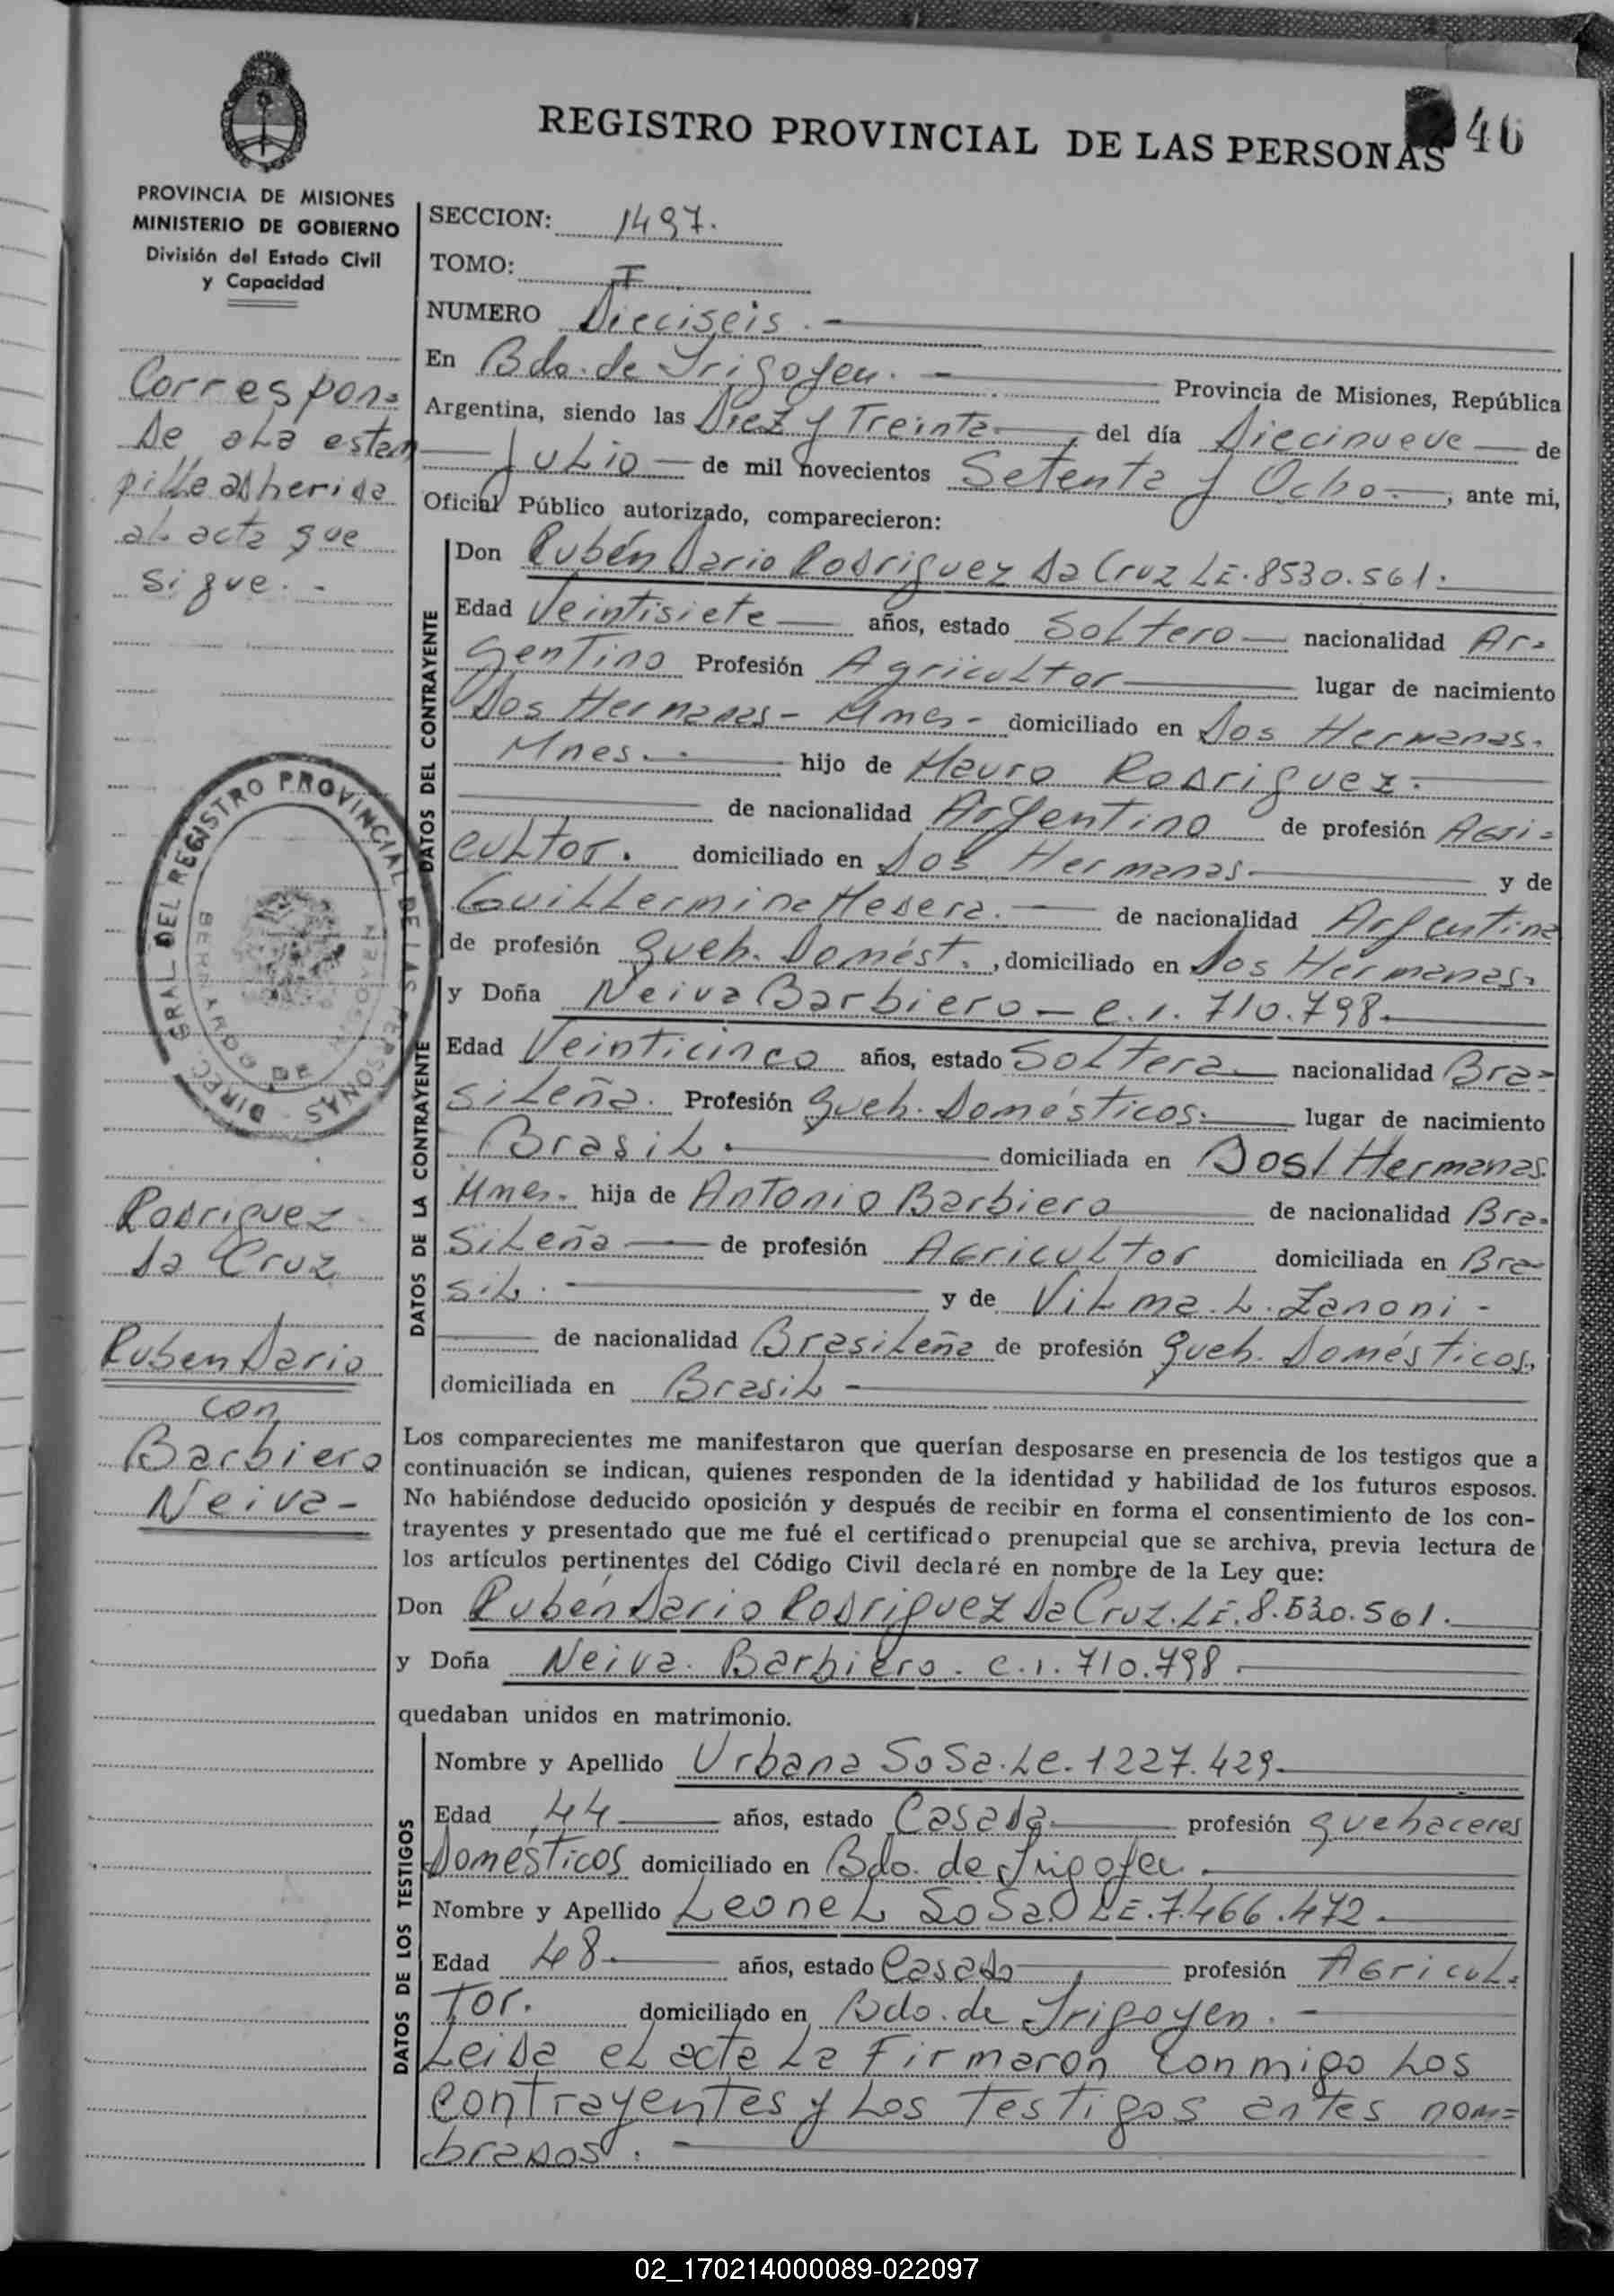 REGISTRO PROVINCIAL DE LAS PERSONAS
46
PROVINCIA DE MISIONES
MINISTERIO DE GOBIERNO
División del Estado Civil
y Capacidad
Correspon=
de a la estam
pilla adherida
al acta que
sigue. -
DIREC. GRAL. DEL REGISTRO PROVINCIAL DE LAS PERSONAS
BERNARDO DE IRIGOYEN
Rodriguez
da Cruz
Ruben Dario
con
Barbiero
Neiva -
SECCION: 1497.
TOMO: I
NUMERO Dieciseis. -
En Bdo. de Irigoyen. - Provincia de Misiones, República
Argentina, siendo las Diez y Treinta - , del día Diecinueve - de
Julio - de mil novecientos Setenta y Ocho. - , ante mi,
Oficial Público autorizado, comparecieron:
DATOS DEL CONTRAYENTE
Don Rubén Dario Rodriguez da Cruz LE. 8530.561.
Edad Veintisiete - años, estado Soltero - nacionalidad Ar=
gentino Profesión Agricultor - lugar de nacimiento
Dos Hermanas - Mnes - domiciliado en Dos Hermanas.
Mnes. - hijo de Mauro Rodriguez. -
de nacionalidad Argentino de profesión Agri=
cultor. domiciliado en Dos Hermanas - y de
Guillermina Medera. - de nacionalidad Argentina
de profesión queh. Domést. , domiciliado en Dos Hermanas.
DATOS DE LA CONTRAYENTE
y Doña Neiva Barbiero - c.i. 710.798.
Edad Veinticinco años, estado Soltera - nacionalidad Bra=
sileña. Profesión queh. Domésticos. - lugar de nacimiento
Brasil. - domiciliada en Dos/Hermanas.
Mnes. hija de Antonio Barbiero de nacionalidad Bra=
sileña - de profesión Agricultor domiciliada en Bra=
sil. - y de Vilma. L. Zanoni -
de nacionalidad Brasileña de profesión queh. Domésticos,
domiciliada en Brasil -
Los comparecientes me manifestaron que querían desposarse en presencia de los testigos que a
continuación se indican, quienes responden de la identidad y habilidad de los futuros esposos.
No habiéndose deducido oposición y después de recibir en forma el consentimiento de los con-
trayentes y presentado que me fué el certificado prenupcial que se archiva, previa lectura de
los artículos pertinentes del Código Civil declaré en nombre de la Ley que:
Don Rubén Dario Rodriguez Da Cruz. LE. 8.530.561.
y Doña Neiva. Barbiero. c.i. 710.798.
quedaban unidos en matrimonio.
DATOS DE LOS TESTIGOS
Nombre y Apellido Urbana Sosa. Lc. 1227.429.
Edad 44 - años, estado Casada - profesión quehaceres
Domésticos domiciliado en Bdo. de Irigoyen.
Nombre y Apellido Leonel Sosa. LE. 7.466.472.
Edad 48. - años, estado Casado - profesión Agricul=
tor. domiciliado en Bdo. de Irigoyen. -
Leida el acta La Firmaron conmigo los
contrayentes y Los Testigos antes nom=
brados. -
02_170214000089-022097